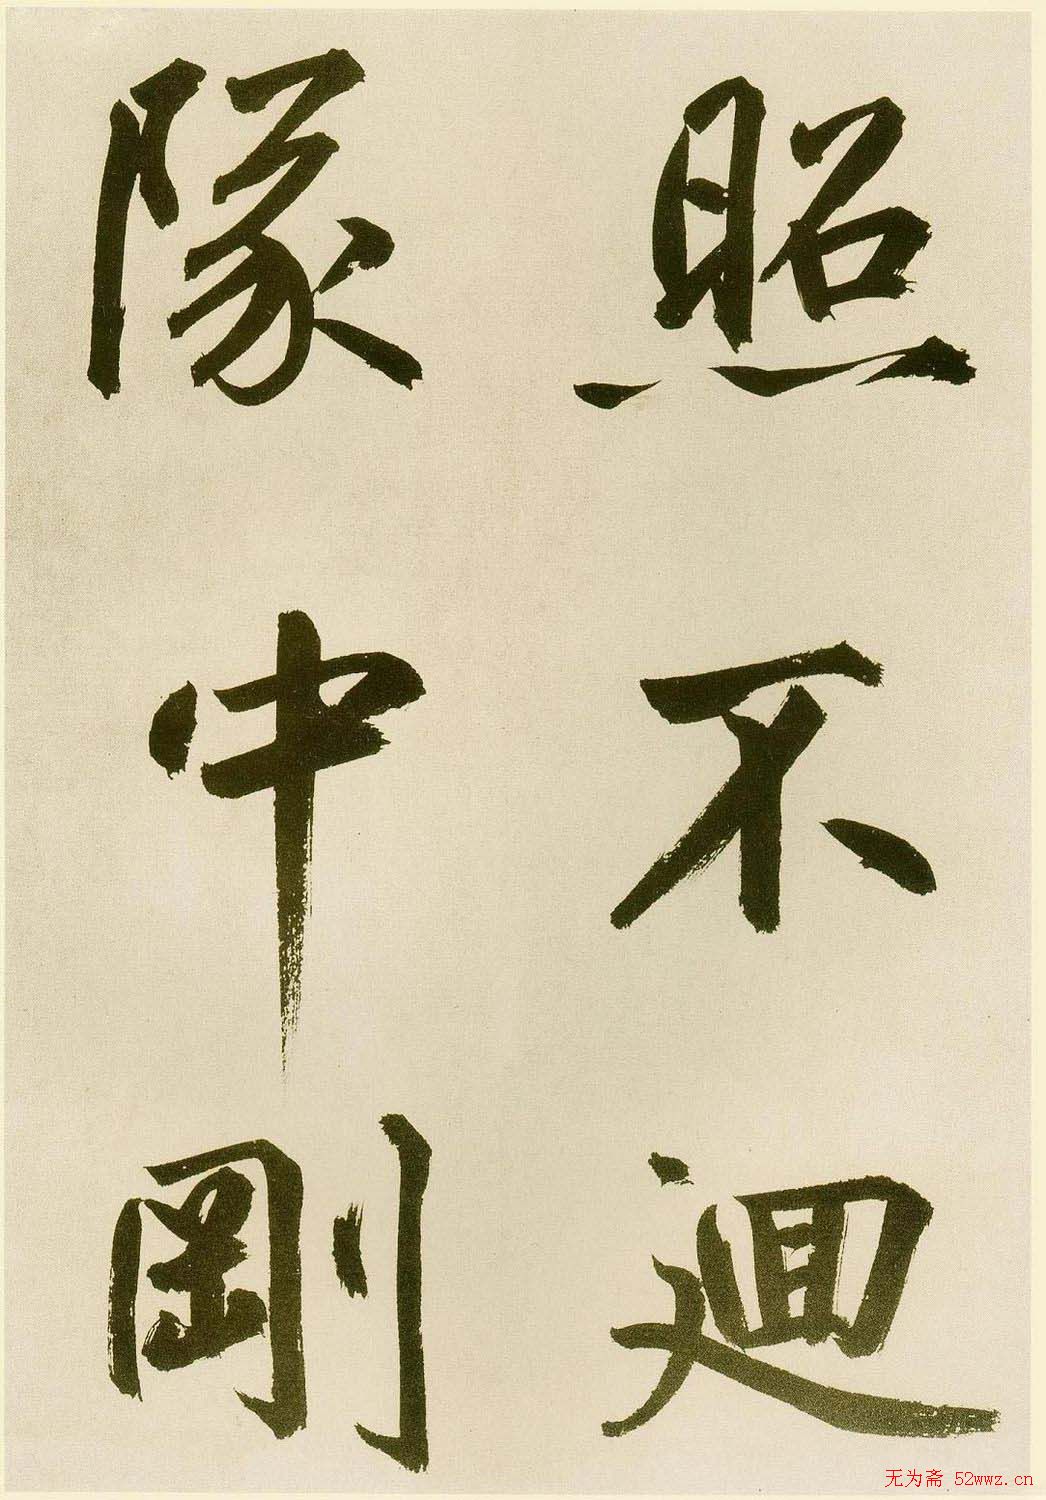 照不迴
隊中剛
无为斋 52wwz.cn